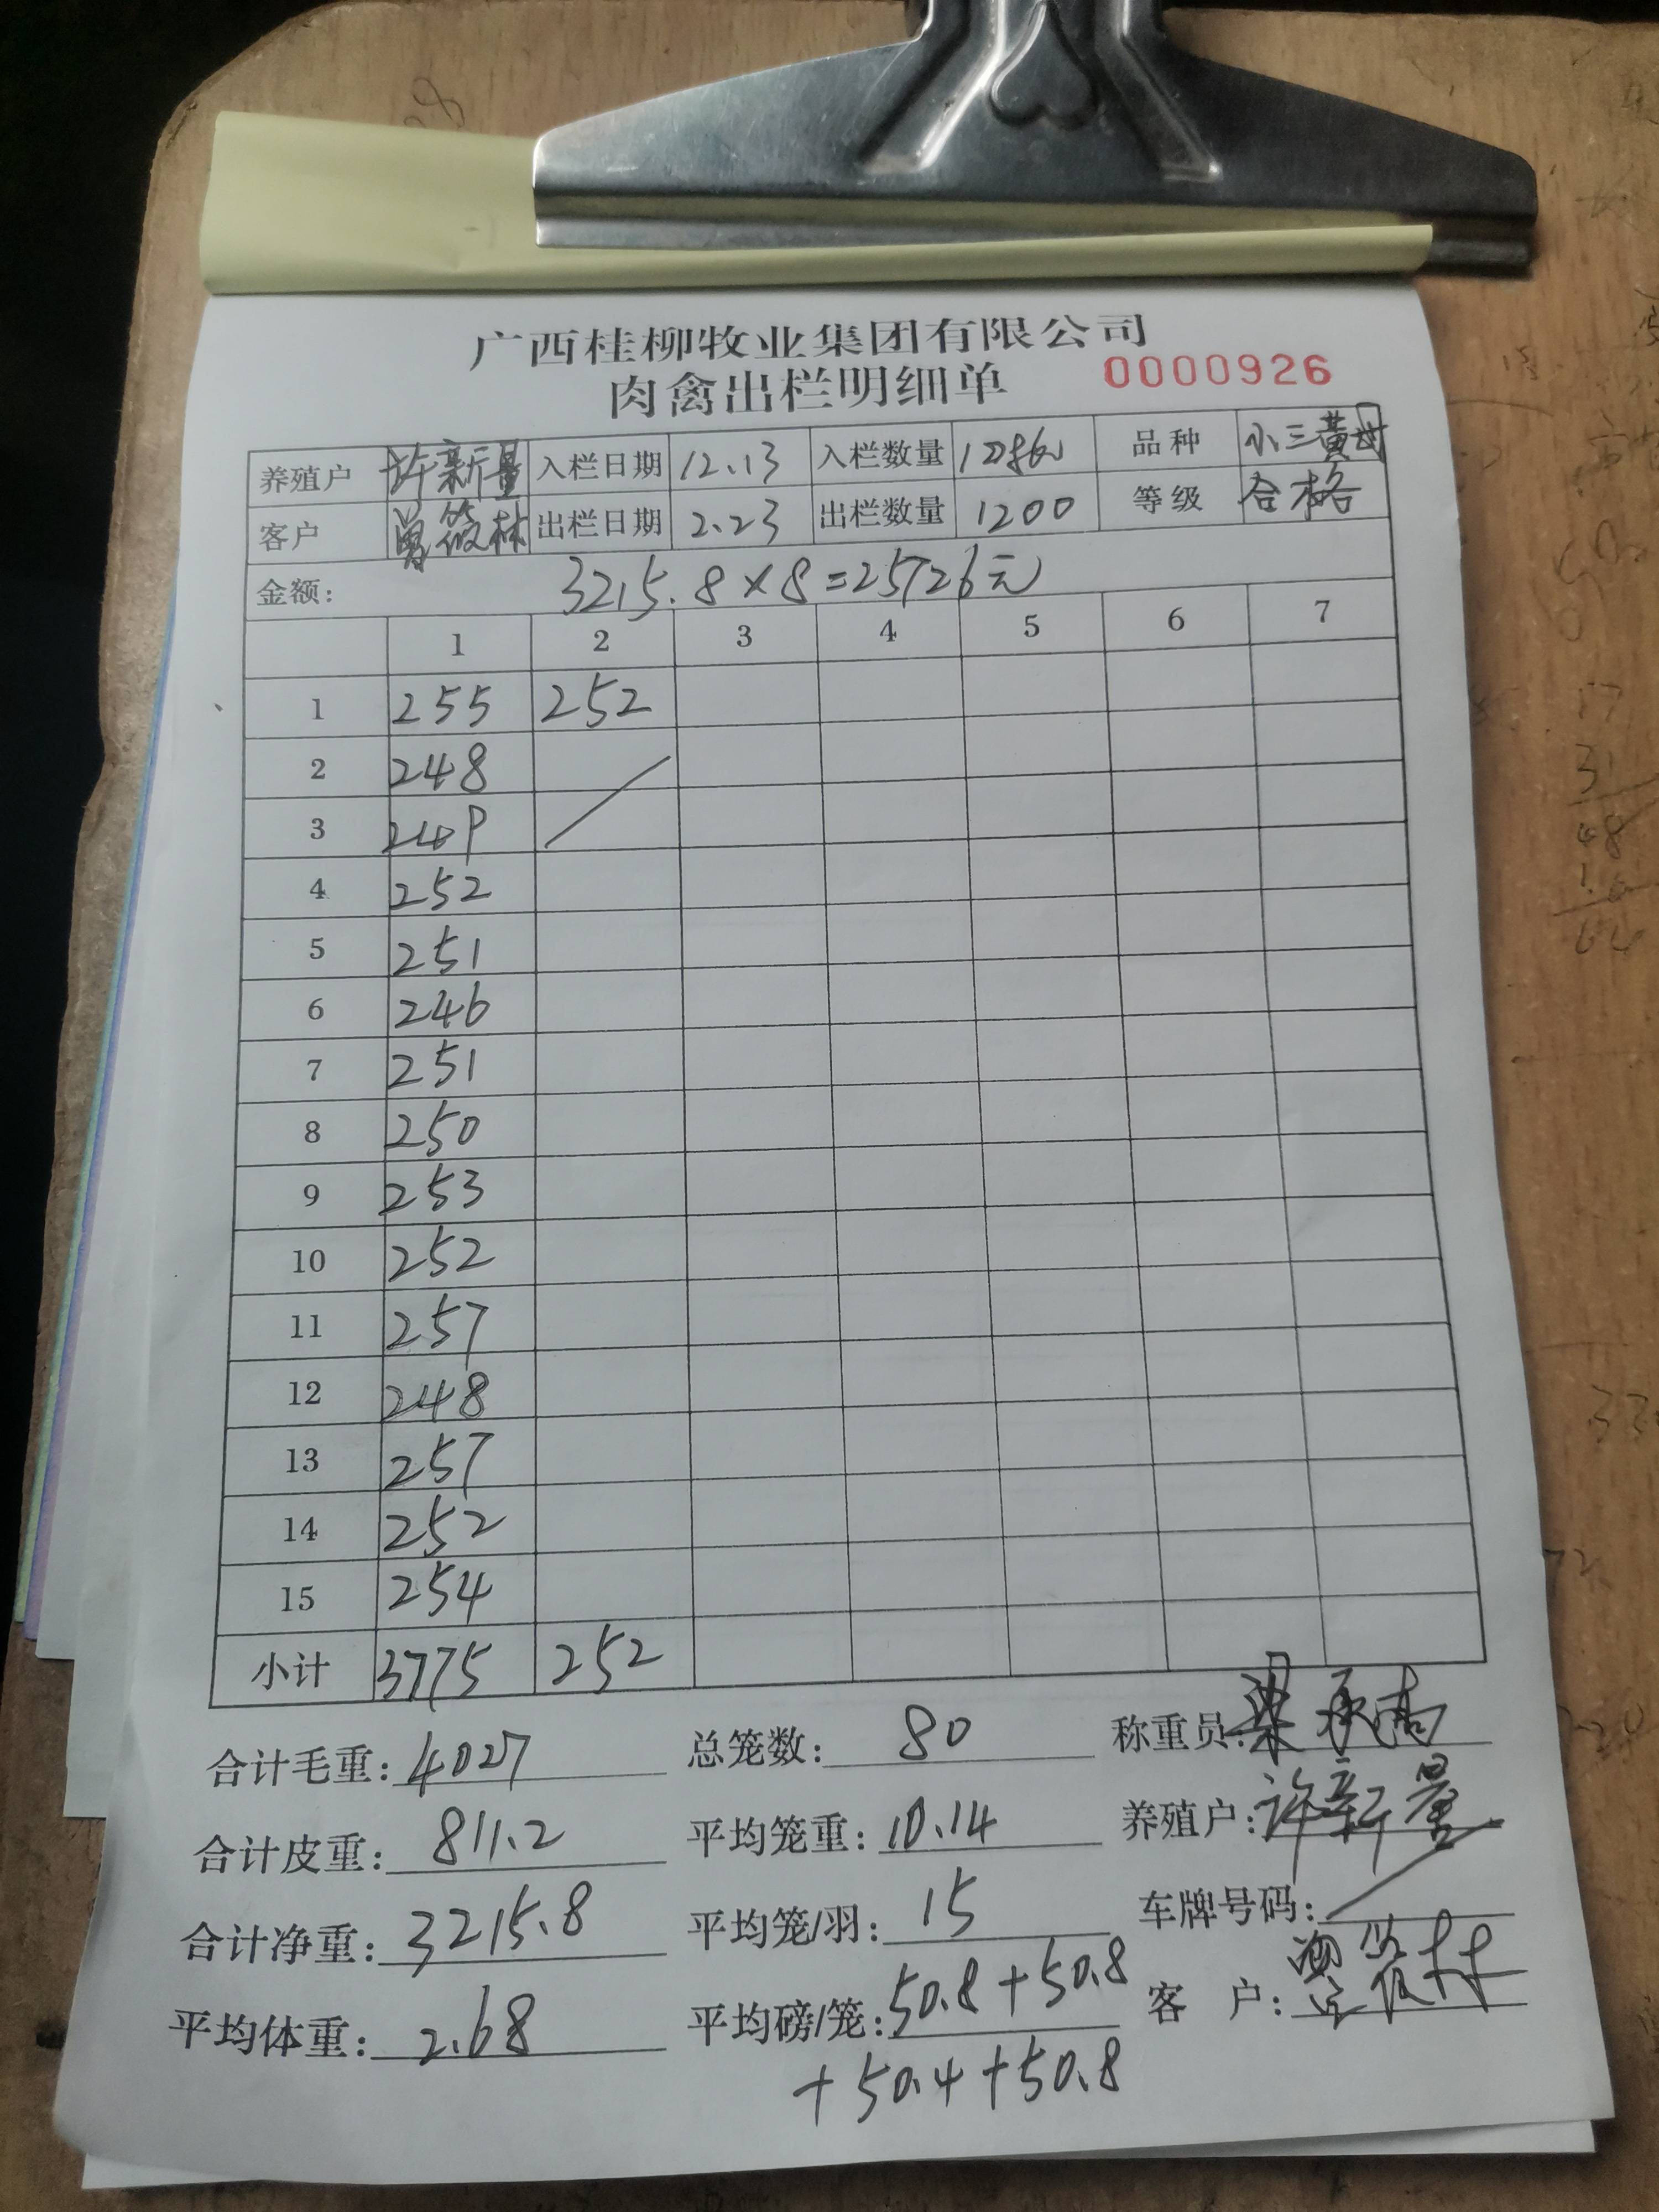 广西桂柳牧业集团有限公司
肉禽出栏明细单 0000926
养殖户 许新量 入栏日期 12.13 入栏数量 品种 小三黄母
客户 曾筱林 出栏日期 2.23 出栏数量 1200 等级 合格
金额: 3215.8×8=25726元
1 2 3 4 5 6 7
1 255 252
2 248
3 249
4 252
5 251
6 246
7 251
8 250
9 253
10 252
11 257
12 248
13 257
14 252
15 254
小计 3775 252
合计毛重: 4027 总笼数: 80 称重员:
合计皮重: 811.2 平均笼重: 10.14 养殖户: 许新量
合计净重: 3215.8 平均笼/羽: 15 车牌号码:
平均体重: 2.68 平均磅/笼: 50.8+50.8 客 户: 曾筱林
+50.4+50.8